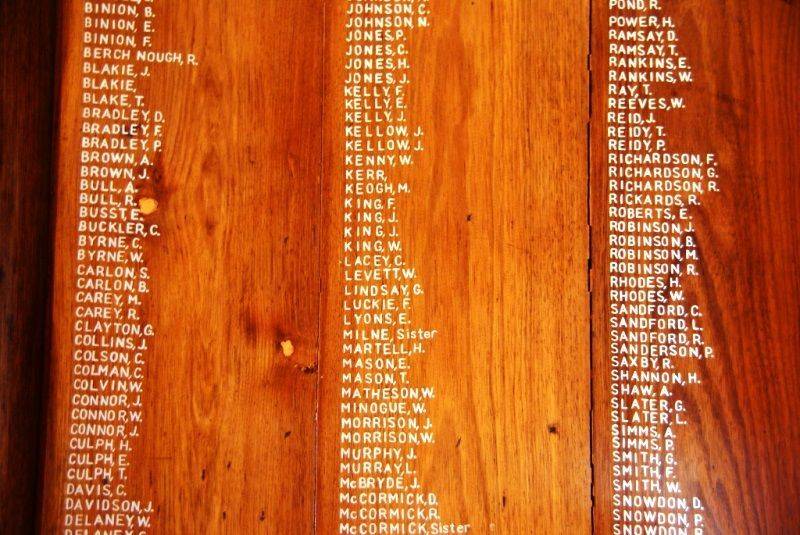 BINION, B.
BINION, E.
BINION, F.
BERCH NOUGH, R.
BLAKIE, J.
BLAKIE,
BLAKE, T.
BRADLEY, D.
BRADLEY, F.
BRADLEY, P.
BROWN, A.
BROWN, J.
BULL, A.
BULL, R.
BUSST, E.
BUCKLER, C.
BYRNE, C.
BYRNE, W.
CARLON, S.
CARLON, B.
CAREY, M.
CAREY, R.
CLAYTON, G.
COLLINS, J.
COLSON, C.
COLMAN, C.
COLVIN, W.
CONNOR, J.
CONNOR, W.
CONNOR, J.
CULPH, H.
CULPH, E.
CULPH, T.
DAVIS, C.
DAVIDSON, J.
DELANEY, W.
JOHNSON, C.
JOHNSON, N.
JONES, P.
JONES, C.
JONES, H.
JONES, J.
KELLY, F.
KELLY, E.
KELLY, J.
KELLOW, J.
KELLOW, J.
KENNY, W.
KERR,
KEOGH, M.
KING, F.
KING, J.
KING, J.
KING, W.
LACEY, C.
LEVETT, W.
LINDSAY, G.
LUCKIE, F.
LYONS, E.
MILNE, Sister
MARTELL, H.
MASON, E.
MASON, T.
MATHESON, W.
MINOGUE, W.
MORRISON, J.
MORRISON, W.
MURPHY, J.
MURRAY, L.
McBRYDE, J.
McCORMICK, D.
McCORMICK, R.
McCORMICK, Sister
POND, R.
POWER, H.
RAMSAY, D.
RAMSAY, T.
RANKINS, E.
RANKINS, W.
RAY, T.
REEVES, W.
REID, J.
REIDY, T.
REIDY, P.
RICHARDSON, F.
RICHARDSON, G.
RICHARDSON, R.
RICKARDS, R.
ROBERTS, E.
ROBINSON, J.
ROBINSON, B.
ROBINSON, M.
ROBINSON, R.
RHODES, H.
RHODES, W.
SANDFORD, C.
SANDFORD, L.
SANDFORD, R.
SANDERSON, P.
SAXBY, R.
SHANNON, H.
SHAW, A.
SLATER, G.
SLATER, L.
SIMMS, A.
SIMMS, P.
SMITH, G.
SMITH, F.
SMITH, W.
SNOWDON, D.
SNOWDON, P.
SNOWDON, R.